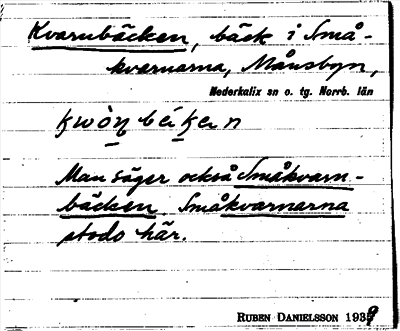 Kvarnbäcken, bäck i Små-
kvarnarna, Månsbyn,
Nederkalix sn o. tg. Norrb. län
Man säger också Småkvarn-
bäcken. Småkvarnarna
stodo här.
RUBEN DANIELSSON 1939